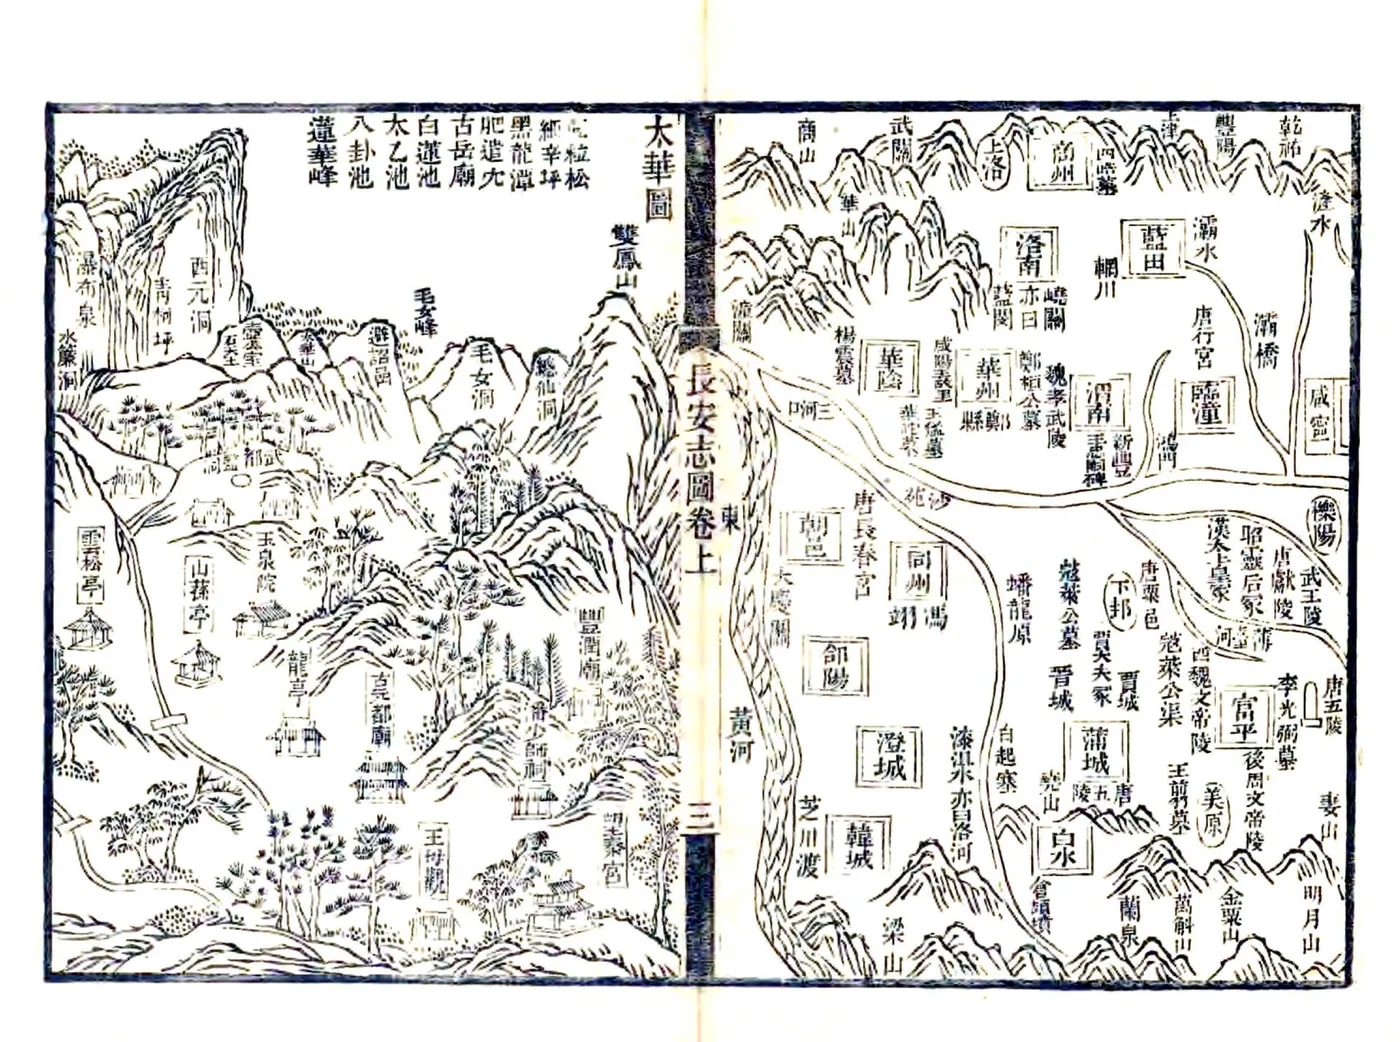 乾祐
豐陽
上津
商州
上洛
武關
商山
滻水
灞水
藍田
輞川
洛南
嶢關
亦曰
藍關
華山
潼關
灞橋
唐行宮
咸寧
臨潼
鴻門
渭南
新豐
魏孝武陵
鄭桓公墓
華州
鄭縣
華陰
楊震墓
王猛墓
三河口
沙苑
櫟陽
武王陵
唐獻陵
昭靈后冢
漢太上皇冢
唐粟邑
下邽
寇萊公墓
蟠龍原
同州
馮翊
唐長春宮
朝邑
大慶關
東
唐五陵
李光弼墓
富平
後周文帝陵
西魏文帝陵
寇萊公渠
賈城
賈大夫冢
晉城
郃陽
黃河
美原
王翦墓
蒲城
唐五陵
堯山
白起寨
漆沮水亦曰洛河
澄城
芝川渡
韓城
白水
明月山
金粟山
萬斛山
蘭泉
梁山
長安志圖卷上
三
太華圖
黑龍潭
古岳廟
白蓮池
太乙池
八卦池
蓮華峰
雙鳳山
毛女峰
毛女洞
避詔嵒
西元洞
青柯坪
瀑布泉
水簾洞
玉泉院
山蓀亭
龍亭
古元都廟
豐潤廟
王母觀